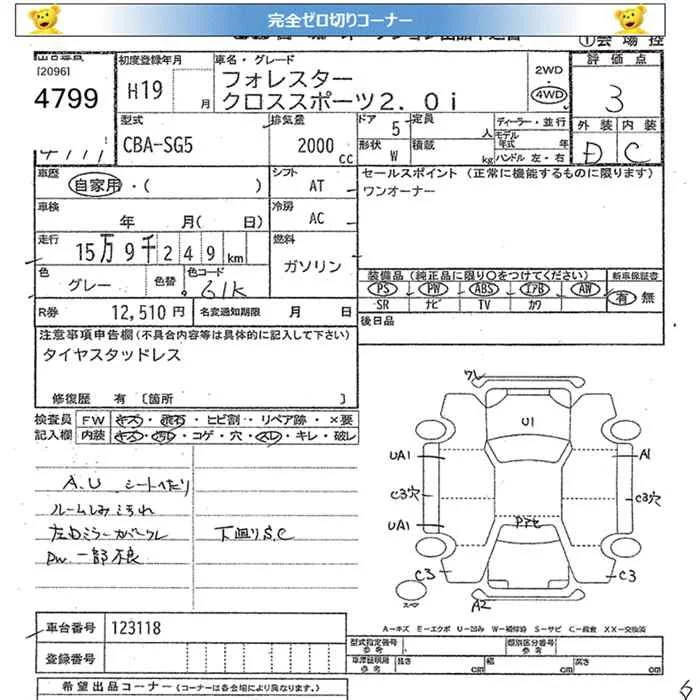 完全ゼロ切りコーナー
①会場控
[2096]
4799
初度登録年月
H19
月
車名・グレード
フォレスター
クロススポーツ2.0i
2WD
・
4WD
評価点
3
外装 内装
D C
型式
CBA-SG5
排気量
2000
CC
ドア
5
定員
人
形状
W
積載
kg
ディーラー・並行
モデル年式
年
ハンドル 左・右
車歴
自家用・( )
シフト
AT
セールスポイント (正常に機能するものに限ります)
ワンオーナー
車検
年 月( 日)
冷房
AC
走行
15万9千249km
燃料
ガソリン
色
グレー
色替
色コード
61K
装備品 (純正品に限り○をつけてください)
PS PW ABS エアB AW
SR ナビ TV カワ
新車保証書
有 無
R券
12,510円
名変通知期限
月 日
後日品
注意事項申告欄(不具合内容等は具体的に記入して下さい)
タイヤスタッドレス
修復歴 有 [箇所 ]
検査員 FW キズ・飛石・ヒビ割・リペア跡・×要
記入欄 内装 キズ・汚レ・コゲ・穴・スレ・キレ・破レ
A.U シートへたり
ルームしみ汚れ
左ドミラーカバーワレ
下廻りS.C
PW 一部不良
ワレ
U1
UA1
A1
C3穴
C3穴
UA1
C3
C3
A2
スペア
A-キズ E-エクボ U-凹み W-補修跡 S-サビ C-腐食 XX-交換済
車台番号
123118
登録番号
型式指定番号
参考
類別区分番号
参考
車庫証明用
参考
長さ
cm
幅
cm
高さ
cm
希望出品コーナー (コーナーは各会場により異なります。)